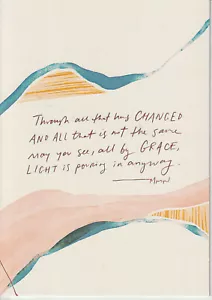 Through all that has CHANGED
AND ALL that is not the same
may you see, all by GRACE,
LIGHT is pouring in anyway.